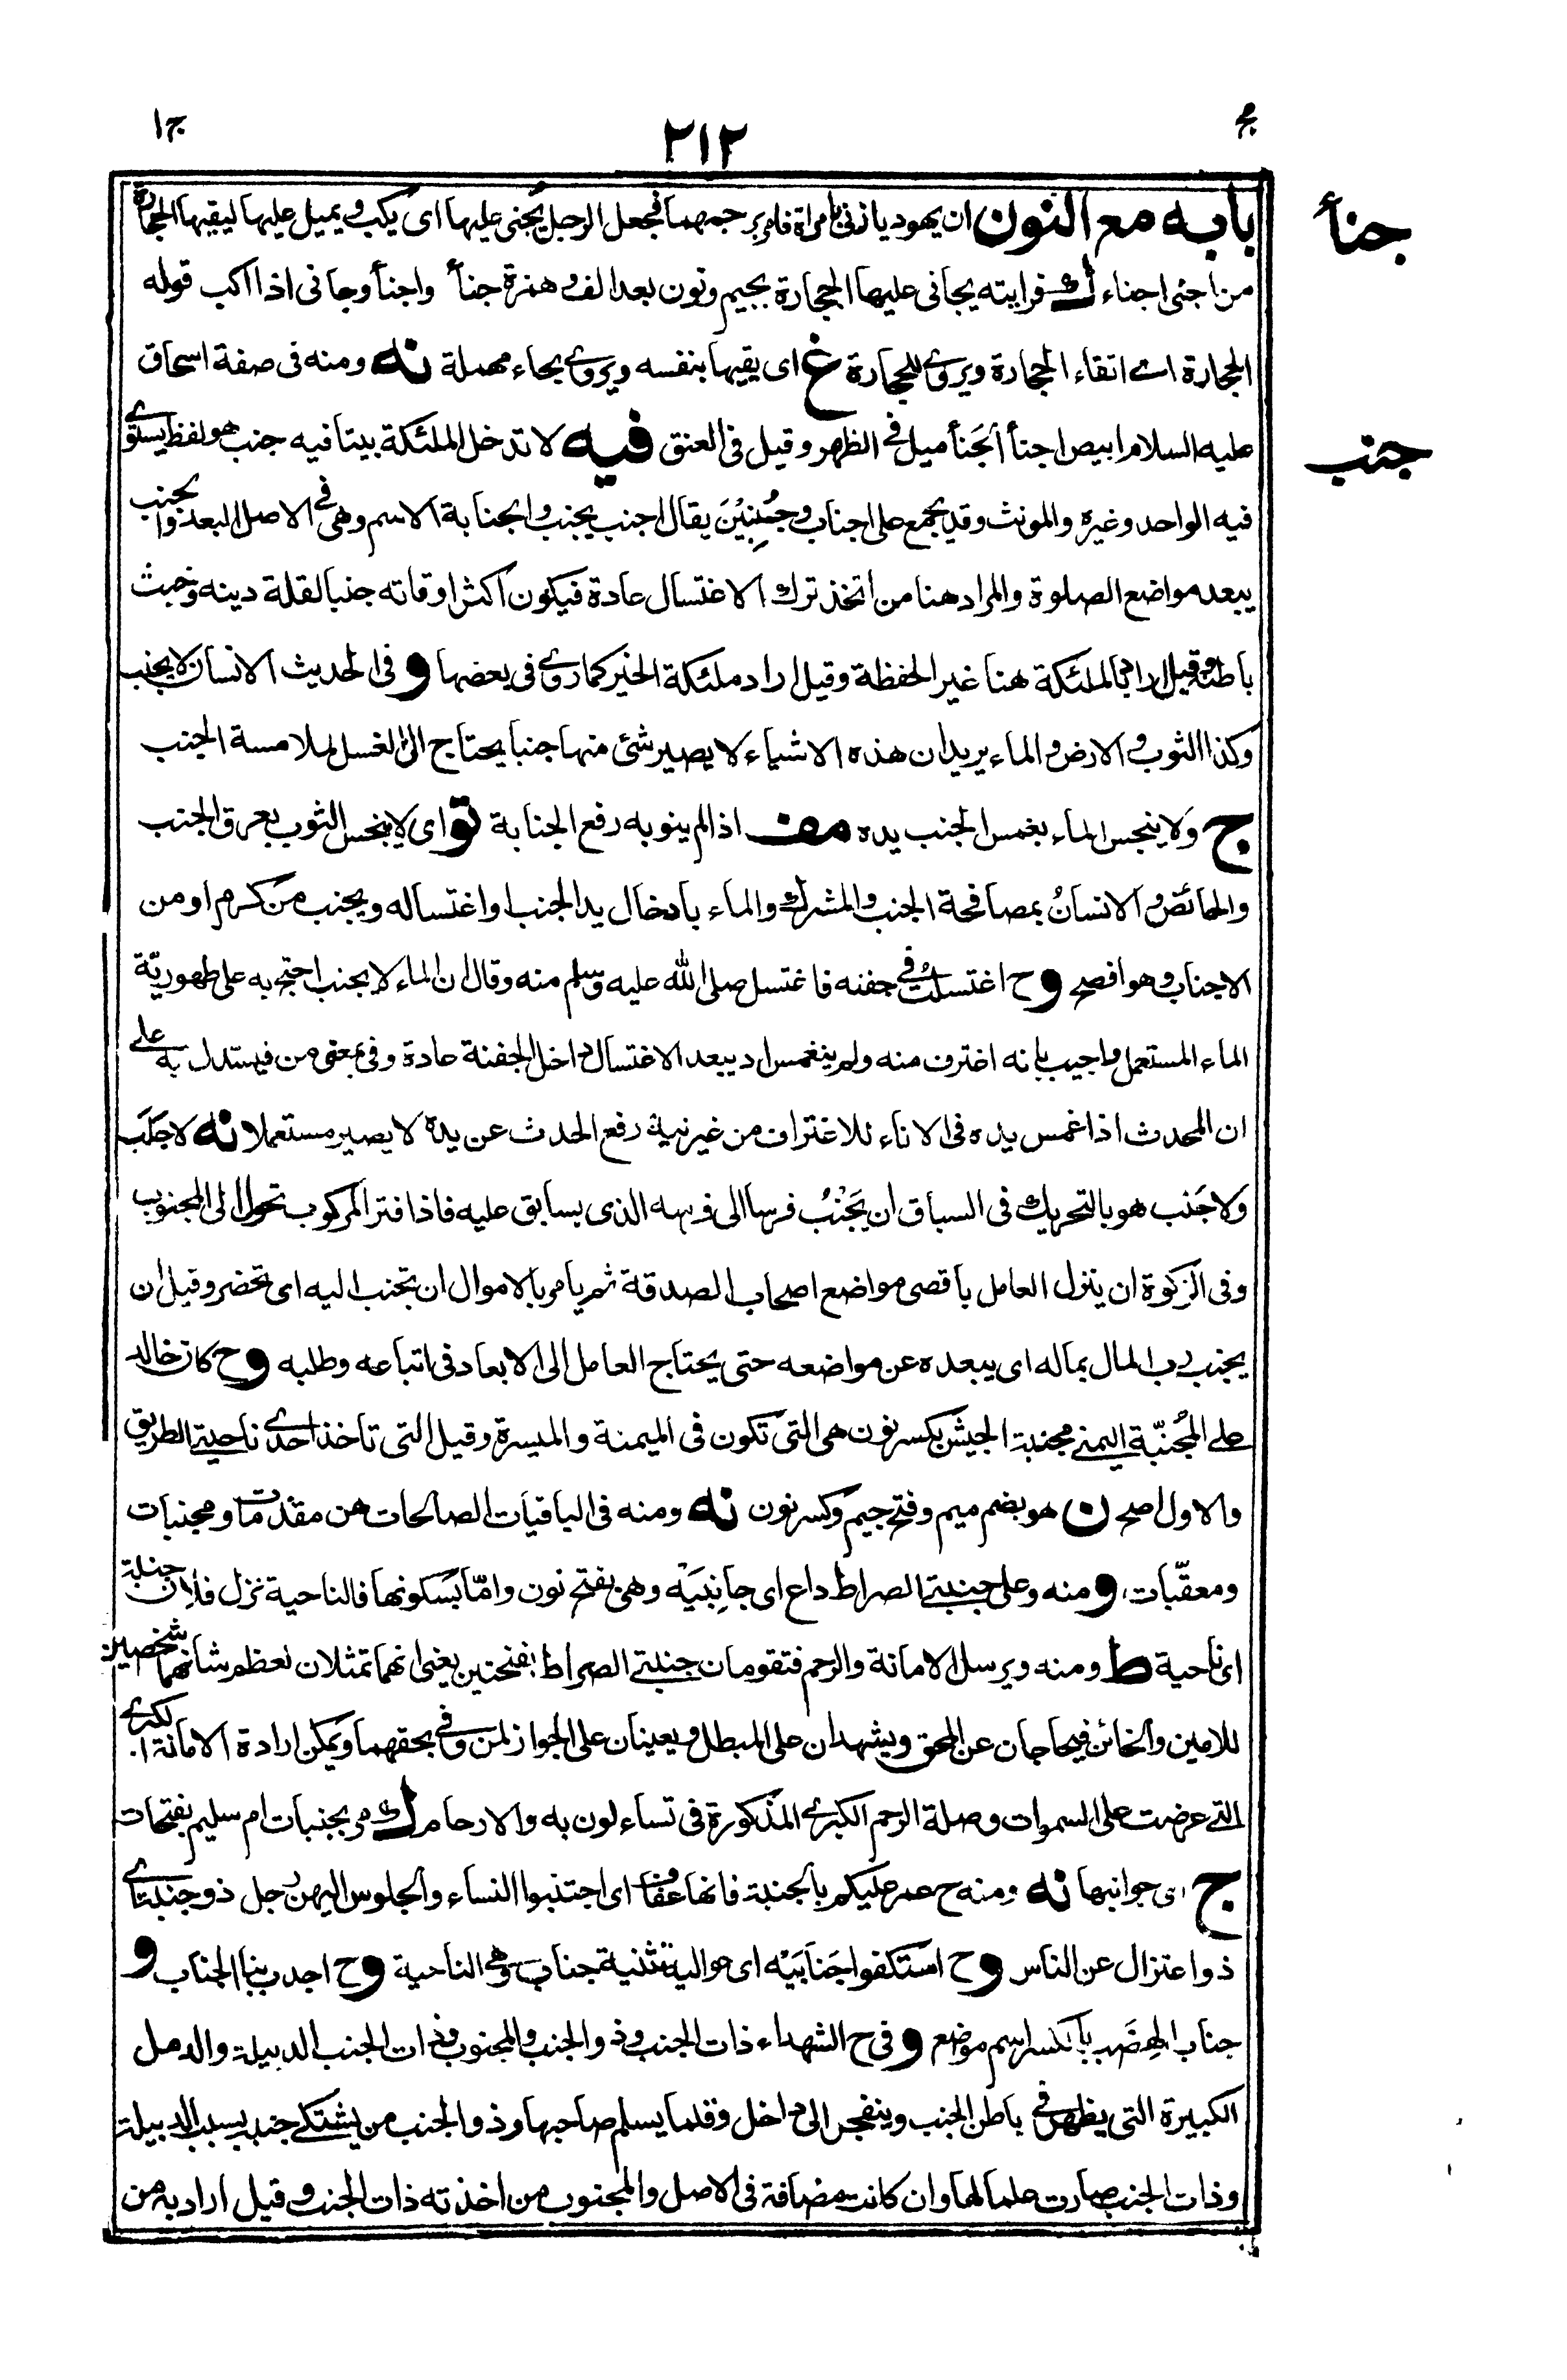 مج
٢١٢
ج١
جنأ
بابه مع النون ان يهوديا زنى بامراة فامر برجمهما فجعل الرجل يُجنى عليها اى يكب ويميل عليها ليقيها الحجارة
من اجنى اجناء ك فرايته يجانى عليها الحجارة بجيم ونون بعد الف وهمزة جنأ واجنأ وجانى اذا اكب قوله
الحجارة اے اتقاء الحجارة ويروے للحجارة غ اى يقيها بنفسه ويروے بحاء مهملة نه ومنه فى صفة اسحاق
جنب
عليه السلام ابيض اجنأ الجَنأ ميل فے الظهر وقيل فى العنق فيه لا تدخل الملئكة بيتا فيه جنب هو لفظ يستوے
فيه الواحد وغيره والمونث وقد يجمع على اجناب وجُنُبِيْنَ يقال اجنب يجنب والجنابة الاسم وهى فے الاصل البعد والجنب
يبعد مواضع الصلوة والمراد هنا من اتخذ ترك الاغتسال عادة فيكون اكثر اوقاته جنبا لقلة دينه وخبث
باطنه وقيل اراد بالملئكة هنا غير الحفظة وقيل اراد ملئكة الخير كما روے فى بعضها و فى الحديث الانسان لا يجنب
وكذا الثوب والارض والماء يريد ان هذه الاشياء لا يصير شئ منها جنبا يحتاج الى الغسل لملامسة الجنب
ج ولا ينجس الماء بغمس الجنب يده مف اذا لم ينو به رفع الجنابة تو اى لا ينجس الثوب بعرق الجنب
والحائض والانسانُ بمصافحة الجنب والمشرك والماء بادخال يد الجنب او اغتساله ويجنب من كرم او من
الاجناب وهو افصح و ح اغتسلتُ فے جفنه فاغتسل صلى الله عليه وسلم منه وقال ان الماء لا يجنب احتج به على طهوريّة
الماء المستعمل واجيب بانه اغترف منه ولم ينغمس اذ يبعد الاغتسال داخل الجفنة عادة وفى بمعنى من فيستدل به علے
ان المحدث اذا غمس يده فى الاناء للاغتراف من غير نية رفع الحدث عن يده لا يصير مستعملا نه لا جَلَب
ولا جَنَب هو بالتحريك فى السباق ان يَجْنُبُ فرسا الى فرسه الذى يسابق عليه فاذا فتر المركوب تحول الى المجنوب
وفى الزكوة ان ينزل العامل باقصى مواضع اصحاب الصدقة ثم يامر بالاموال ان تجنب اليه اى تحضر وقيل ان
يجنب رب المال بماله اى يبعده عن مواضعه حتى يحتاج العامل الى الابعاد فى اتباعه وطلبه و ح كان خالد
علے المُجنّبة اليمنے مجنبة الجيش بكسر نون هى التى تكون فى الميمنة والميسرة وقيل التى تاخذ احدے ناحية الطريق
والاول اصح ن هو بضم ميم وفتح جيم وكسر نون نه ومنه فى الباقيات الصالحات هن مقدمات ومجنبات
ومعقّبات، و منه وعلى جنبتے الصراط داع اى جانِبَيْه وهى بفتح نون وامّا بسكونها فالناحية نزل فلان جنبة
اى ناحية ط ومنه ويرسل الامانة والرحم فتقومان جنبتے الصراط بفتحتين يعنى انهما تمثلان لعظم شانهما شخصين
للامين والخائن فيحاجان عن المحق ويشهدان على المبطل ويعينان على الجواز لمن وفے بحقهما ويمكن ارادة الامانة الكبرے
التے عرضت على السموات وصلة الرحم الكبرے المذكورة فى تساءلون به والارحام ك مر بجنبات ام سليم بفتحات
ج اى جوانبها نه ومنه ح عمر عليكم بالجنبة فانها عفاف اى اجتنبوا النساء والجلوس اليهن رجل ذو جنبة اے
ذو اعتزال عن الناس و ح استكفوا جَنَابَيْه اى حواليه تثنية جناب وهى الناحية و ح اجدب بنا الجناب و
جناب الهضَب بالكسر اسم موضع و فى ح الشهداء ذات الجنب وذو الجنب والمجنوب وذات الجنب الدبيلة والدمل
الكبيرة التى يظهر فے باطن الجنب وينفجر الى داخل وقلما يسلم صاحبها وذو الجنب من يشتكے جنبه بسبب الدبيلة
وذات الجنب صارت علما لها وان كانت مضافة فى الاصل والمجنوب من اخذته ذات الجنب وقيل اراد به من